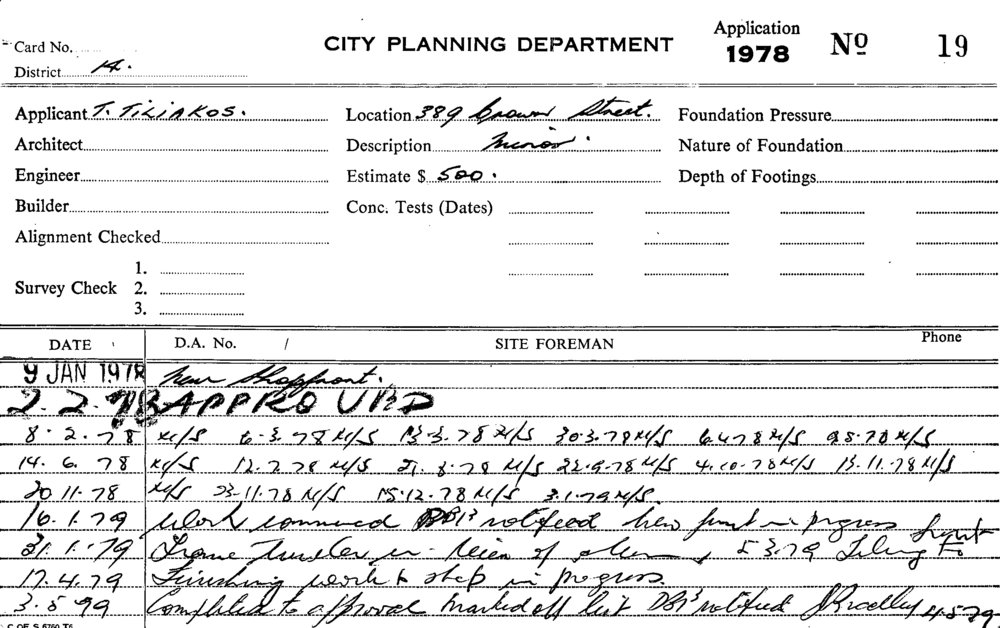 Card No.
CITY PLANNING DEPARTMENT
Application
1978
Nº 19
District 14.
Applicant T. TILIAKOS.
Location 389 Crown Street.
Foundation Pressure
Architect
Description Minor.
Nature of Foundation
Engineer
Estimate $ 500.
Depth of Footings
Builder
Conc. Tests (Dates)
Alignment Checked
1.
Survey Check 2.
3.
DATE D.A. No. / SITE FOREMAN Phone
9 JAN 1978 New Shopfront.
2.2.78 APPROVED
8.2.78 N/S 6.3.78 N/S 13.3.78 N/S 30.3.78 N/S 6.4.78 N/S 9.5.78 N/S
14.6.78 N/S 12.7.78 N/S 21.8.78 N/S 22.9.78 N/S 4.10.78 N/S 13.11.78 N/S
20.11.78 N/S 23.11.78 N/S 15.12.78 N/S 3.1.79 N/S.
16.1.79 Work commenced notified New front in progress
31.1.79 Frame of 5.3.79 Tiling to front
17.4.79 Finishing work to shop in progress.
3.5.79 Completed to approval marked off list notified JBradley 4.5.79
C OF S 5760 T6